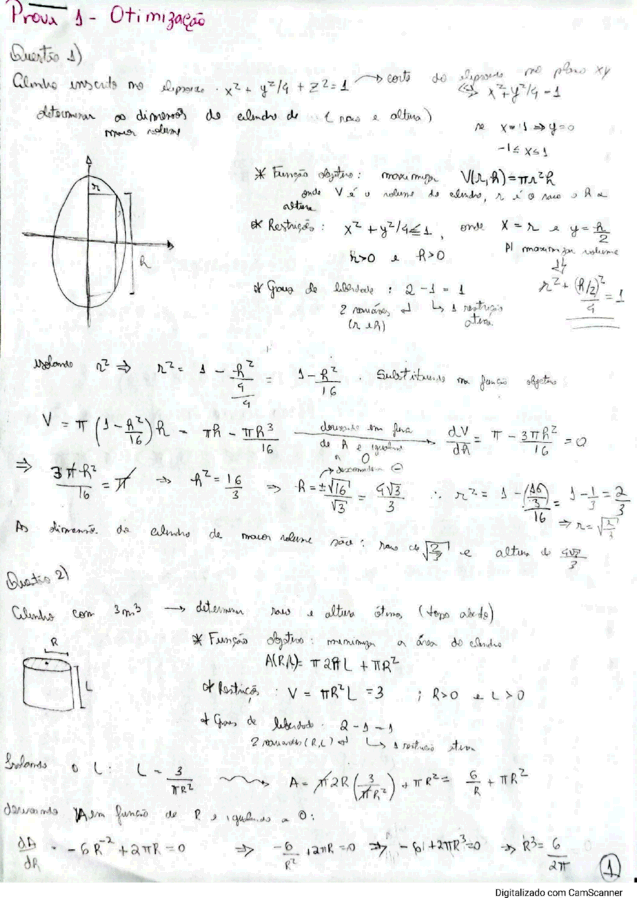 Prova 1 - Otimização
Questão 1)
Cilindro inscrito no elipsoide · x² + y²/4 + z² = 1 → corte do elipsoide no plano xy
x² + y²/4 = 1
determinar as dimensões do cilindro de (raio e altura)
maior volume
se x = 1 ⇒ y = 0
-1 ≤ x ≤ 1
* Função objetivo: maximizar V(r,h) = πr²h
onde V é o volume do cilindro, r é o raio e h a
altura
* Restrição: x² + y²/4 ≤ 1, onde x = r e y = h/2
r>0 e h>0
p/ maximizar volume
r² + (h/2)²/4 = 1
* Graus de liberdade: 2 - 1 = 1
2 variáveis ↲ ↳ 1 restrição
(r e h) ativa
r
h
isolando r² ⇒ r² = 1 - h²/4/4 = 1 - h²/16 . Substituindo na função objetivo
V = π (1 - h²/16) h = πh - πh³/16 derivando em função de h e igualando a 0 → dV/dh = π - 3πh²/16 = 0
⇒ 3πh²/16 = π ⇒ h² = 16/3 ⇒ h = ±√16/√3 = 4√3/3 ∴ r² = 1 - (16/3)/16 = 1 - 1/3 = 2/3
→ desconsidera ⊖
⇒ r = √2/3
As dimensões do cilindro de maior volume são: raio de √2/3 e altura de 4√3/3
Questão 2)
Cilindro com 3m³ → determinar raio e altura ótimos (topo aberto)
R
L
* Função objetivo: minimizar a área do cilindro
A(R,L) = π2RL + πR²
* Restrição: V = πR²L = 3 ; R>0 e L>0
* Graus de liberdade: 2 - 1 = 1
2 variáveis (R,L) ↲ ↳ 1 restrição ativa
Isolando o L: L = 3/πR² → A = π2R (3/πR²) + πR² = 6/R + πR²
derivando A em função de R e igualando a 0:
dA/dR = -6R⁻² + 2πR = 0 ⇒ -6/R² + 2πR = 0 ⇒ -6 + 2πR³ = 0 ⇒ R³ = 6/2π
1
Digitalizado com CamScanner